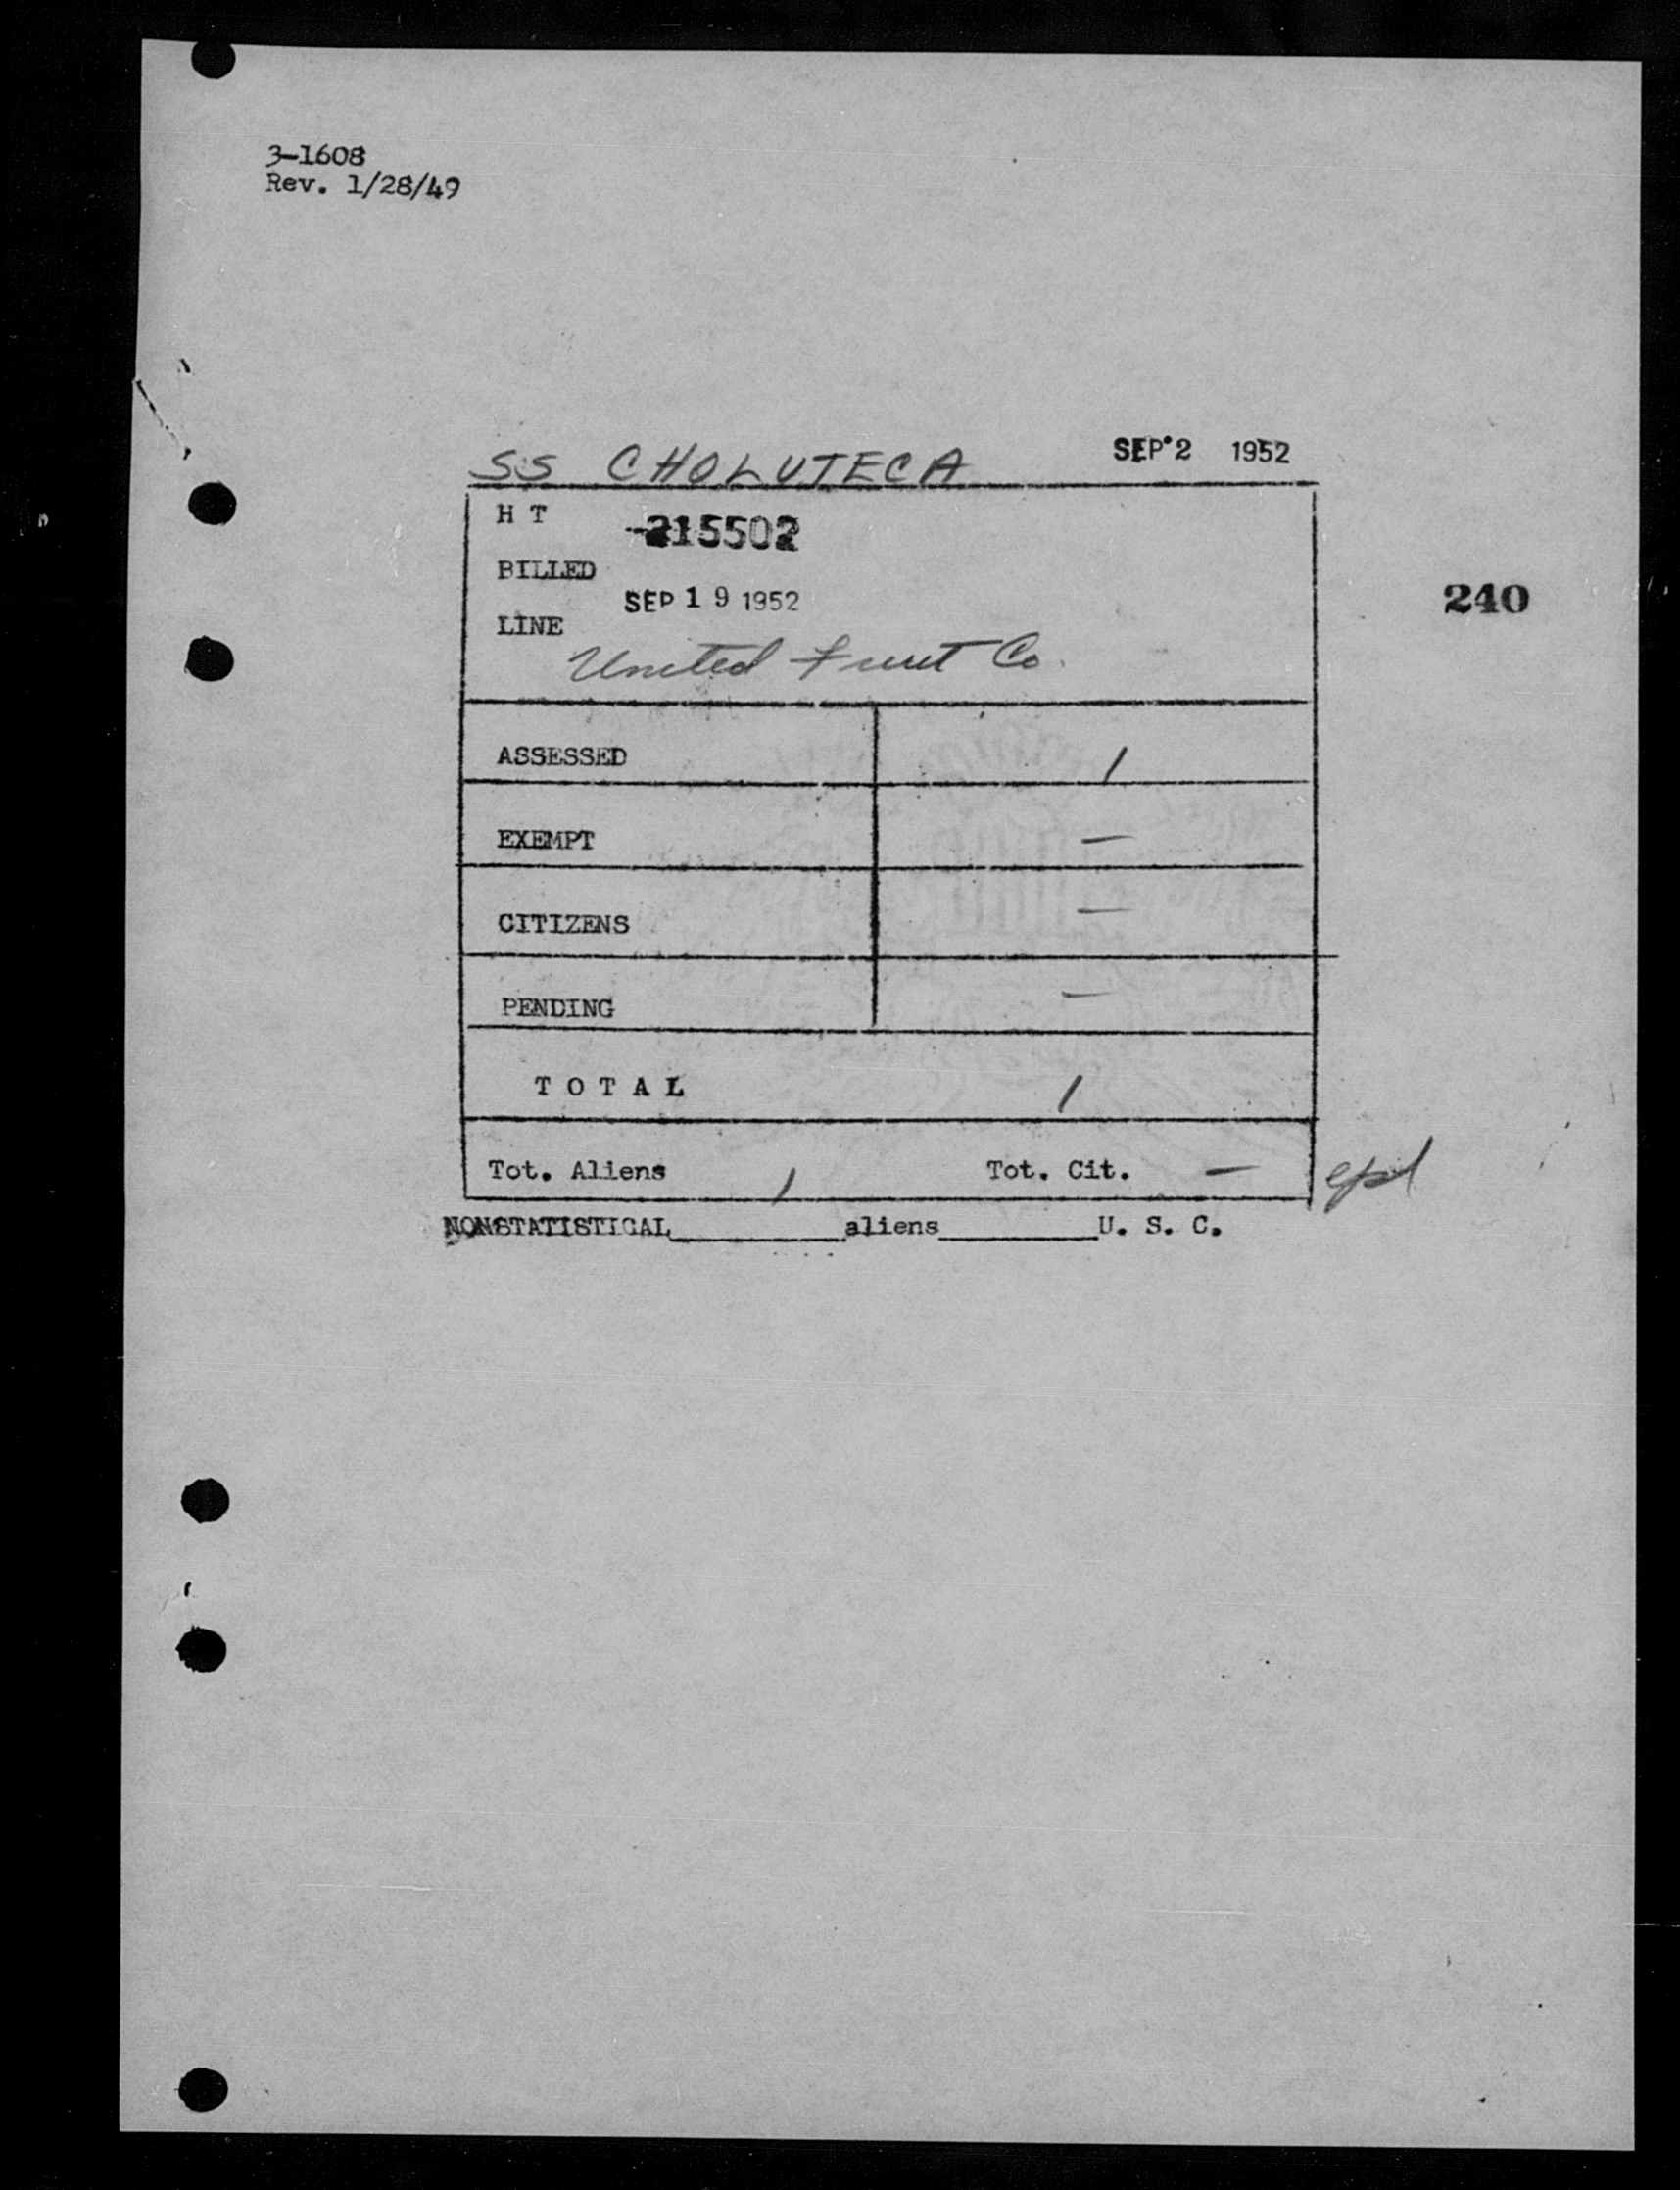 3-1608
Rev. 1/28/49
SS CHOLUTECA SEP 2 1952
H T -215502
BILLED
SEP 19 1952
LINE
United Fruit Co.
240
ASSESSED 1
EXEMPT —
CITIZENS —
PENDING —
T O T A L 1
Tot. Aliens 1 Tot. Cit. —
NONSTATISTICAL________aliens________U. S. C.